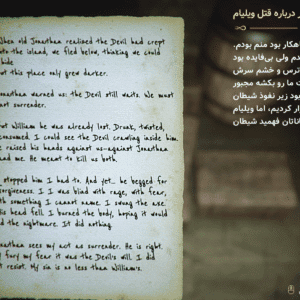 درباره قتل ویلیام
When old Jonathan realised the Devil had crept
onto the island, we fled below, thinking we could
hide
but this place only grew darker.
Jonathan warned us: the Devil still waits. We must
not surrender.
But William he was already lost. Drunk, twisted,
consumed. I could see the Devil crawling inside him
he raised his hands against us-against Jonathan
and me. He meant to kill us both.
I stopped him I had to. And yet.. he begged for
forgiveness. I I was blind with rage, with fear,
with something I cannot name. I swung the axe
his head fell. I burned the body, hoping it would
end the nightmare. It did nothing.
Jonathan sees my act as surrender. He is right.
my fury my fear it was the Devil's will. I did
not resist. My sin is no less than William's.
هکار بود منم بودم.
دم ولی بی‌فایده بود
ترس و خشم سرش
ت ما رو بکشه مجبور
بود زیر نفوذ شیطان
ار کردیم، اما ویلیام
ناتان فهمید شیطان